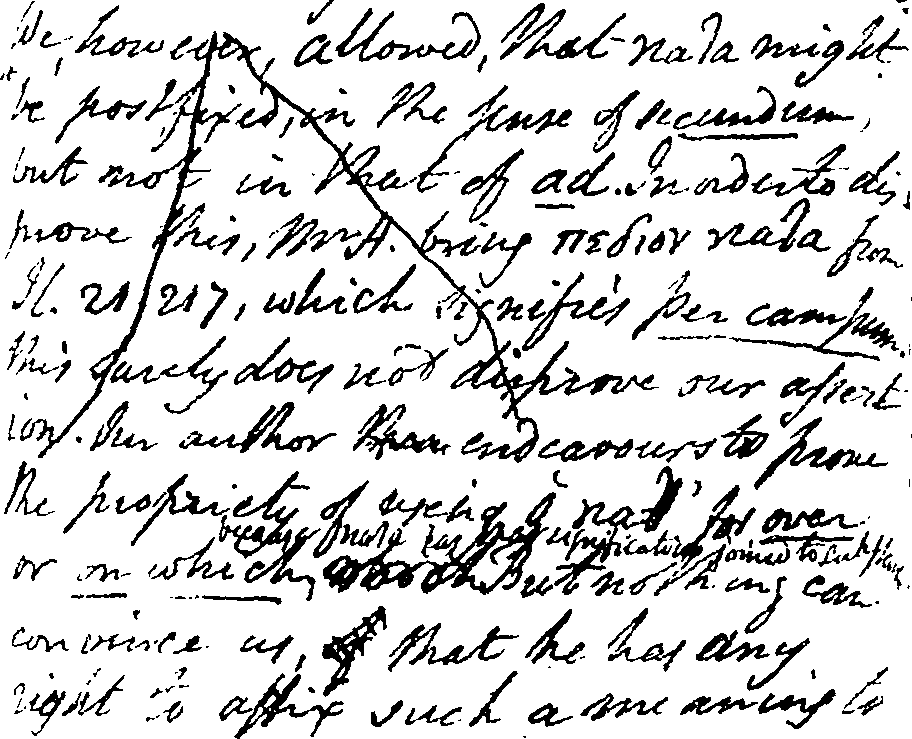 We, however, allowed, that κατα might
be postfixed, in the sense of secundum,
but not in that of ad. In order to dis,
prove this, Mr A. brings πεδιον κατα from
Il. 21. 217, which signifies per campum.
this surely does not disprove our assert
ion. Our author then endeavours to prove
the propriety of using κατ' for over
because κατα has that signification, joined to
or on which, But nothing can
convince us, that he has any
right to affix such a meaning to